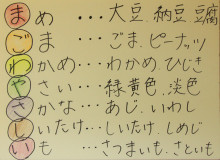 まめ・・・大豆、納豆、豆腐
ごま・・・ごま、ピーナッツ
わかめ・・・わかめ、ひじき
やさい・・・緑黄色、淡色
さかな・・・あじ、いわし
しいたけ・・・しいたけ、しめじ
いも・・・さつまいも、さといも